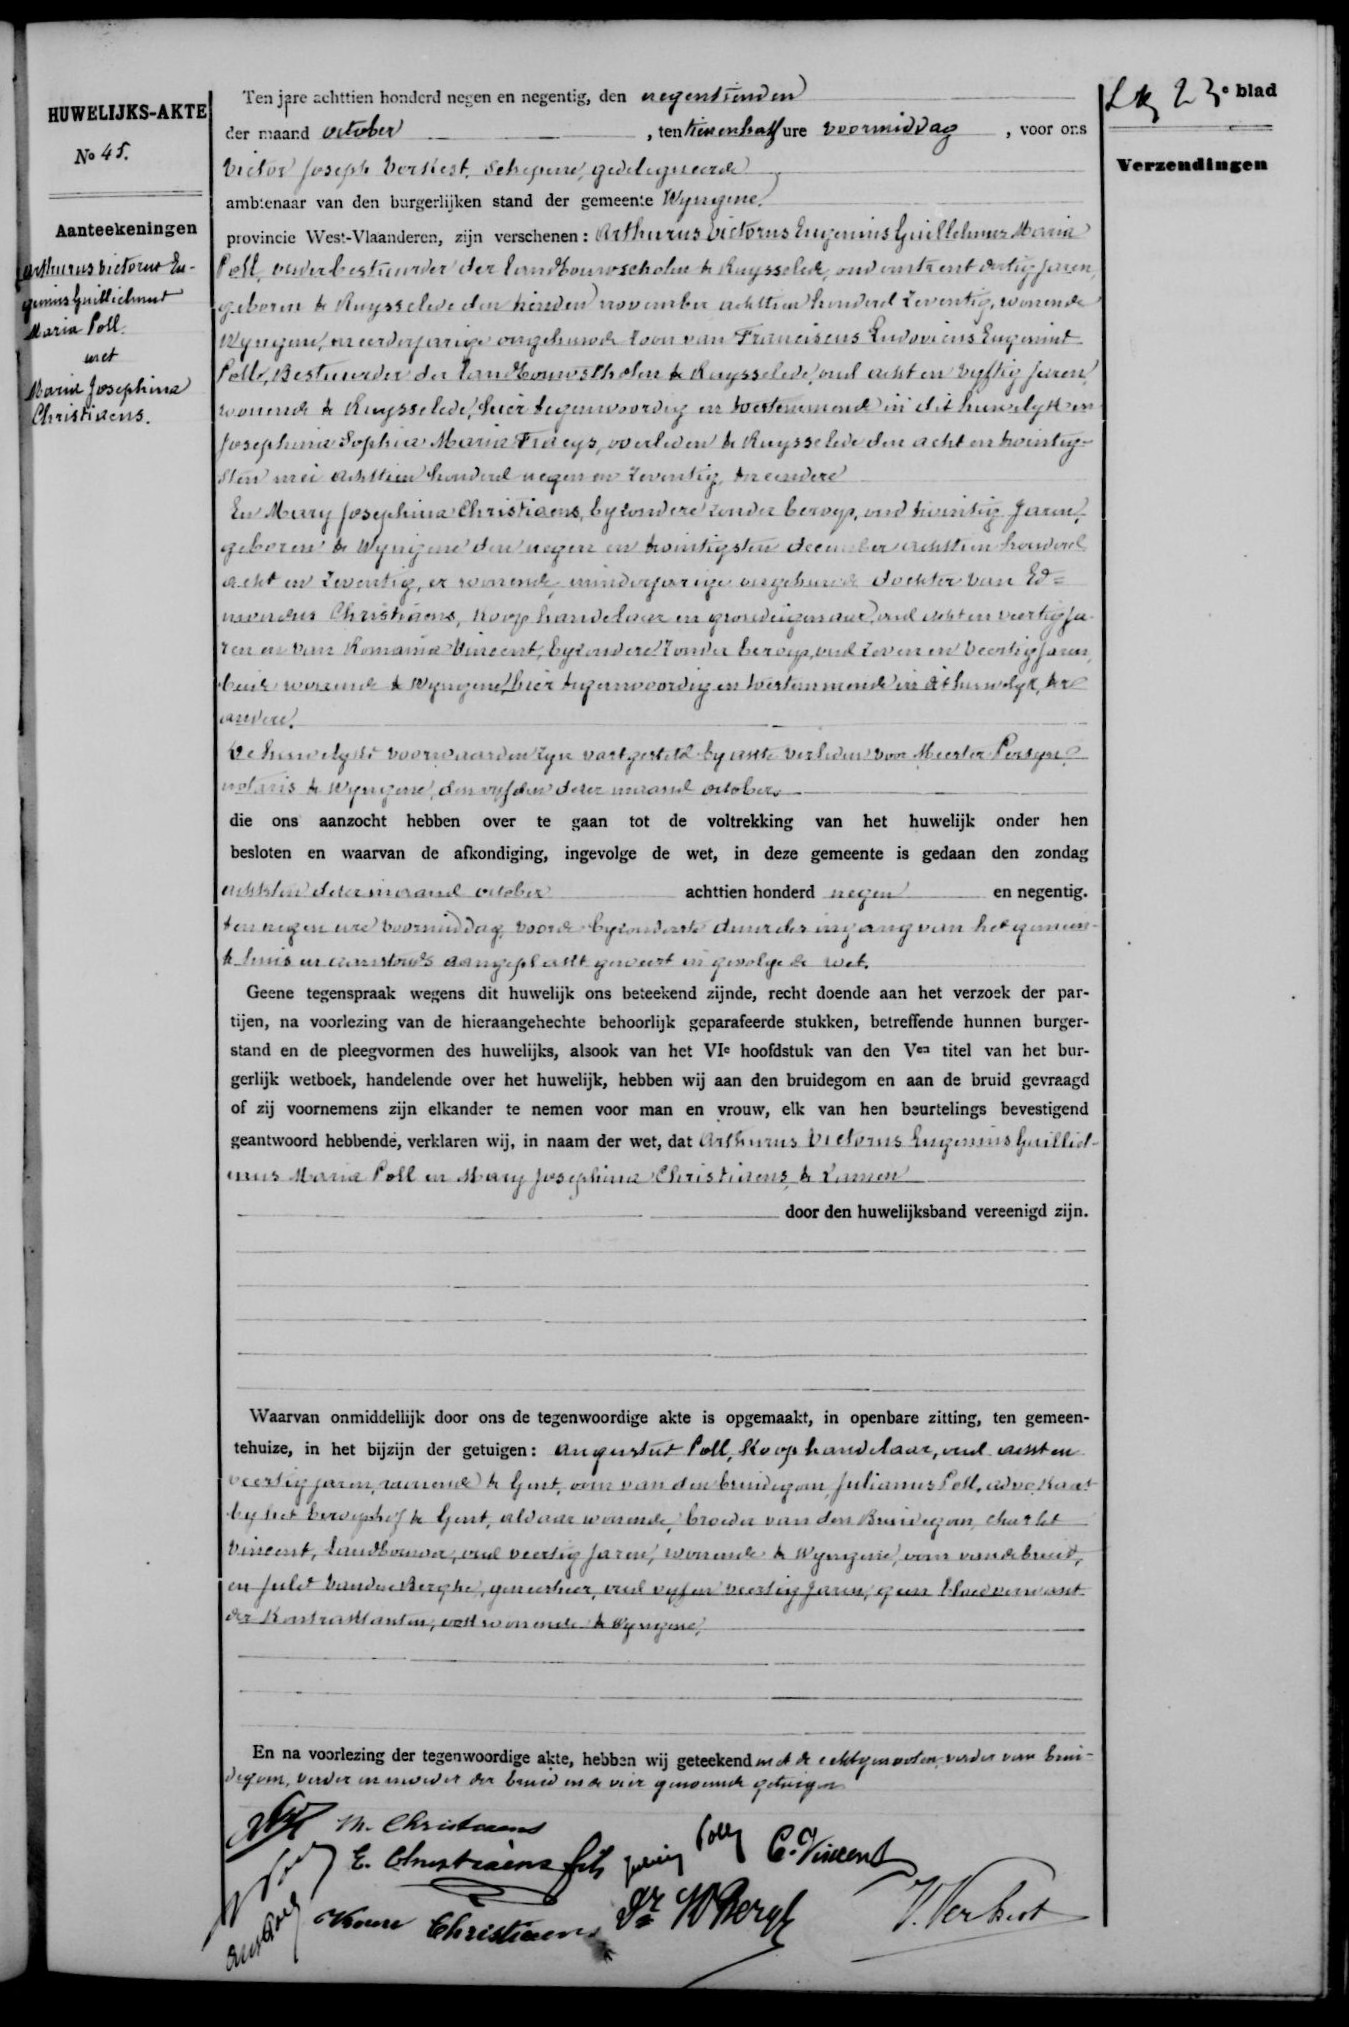 HUWELIJKS-AKTE
No 45.
Aanteekeningen
Arthurus Victorus Eu-
genius Guillielmus
Maria Poll.
met
Maria Josephina
Christiaens.
23e blad
Verzendingen
Ten jare achttien honderd negen en negentig, den negentienden
der maand october, ten tienenhalf ure voormiddag, voor ons
Victor Joseph Verkest, Schepene, gedelegueerde
ambtenaar van den burgerlijken stand der gemeente Wyngene,
provincie West-Vlaanderen, zijn verschenen: Arthurus Victorus Eugenius Guillelmus Maria
Poll, onderbestuurder der Landbouwscholen te Ruysselede, oud omtrent dertig jaren,
geboren te Ruysselede den tienden november achttien honderd zeventig, wonende
Wyngene, meerderjarige ongehuwde zoon van Franciscus Ludovicus Eugenius
Poll, Bestuurder der Landbouwscholen te Ruysselede, oud acht en vyftig jaren,
wonende te Ruysselede, hier tegenwoordig en toestemmende in dit huwelyk en
Josephina Sophia Maria Fraeys, overleden te Ruysselede den acht en twintig-
sten mei achttien honderd negen en zeventig, ter eendere
En Mary Josephina Christiaens, byzondere zonder beroep, oud twintig jaren,
geboren te Wyngene den negen en twintigsten december achttien honderd
acht en zeventig, er wonende, minderjarige ongehuwde dochter van Ed=
mondus Christiaens, koophandelaar en grondeigenaar, oud acht en veertig ja-
ren en van Romania Vincent, byzondere zonder beroep, oud zeven en veertig jaren,
beide wonende te Wyngene, hier tegenwoordig en toestemmende in dit huwelyk, ter
andere.
De huwelyks voorwaarden zyn vastgesteld by akte verleden voor Meester Persyn,
notaris te Wyngene, den vyfden dezer maand october.
die ons aanzocht hebben over te gaan tot de voltrekking van het huwelijk onder hen
besloten en waarvan de afkondiging, ingevolge de wet, in deze gemeente is gedaan den zondag
achtsten dezer maand october achttien honderd negen en negentig.
ten negen ure voormiddag, voor de byzonderste deur der ingang van het gemeen-
te huis en aanstonds aangeplakt geweest in gevolge de wet.
Geene tegenspraak wegens dit huwelijk ons beteekend zijnde, recht doende aan het verzoek der par-
tijen, na voorlezing van de hieraangehechte behoorlijk geparafeerde stukken, betreffende hunnen burger-
stand en de pleegvormen des huwelijks, alsook van het VIe hoofdstuk van den Ven titel van het bur-
gerlijk wetboek, handelende over het huwelijk, hebben wij aan den bruidegom en aan de bruid gevraagd
of zij voornemens zijn elkander te nemen voor man en vrouw, elk van hen beurtelings bevestigend
geantwoord hebbende, verklaren wij, in naam der wet, dat Arthurus Victorus Eugenius Guilliel-
mus Maria Poll en Mary Josephina Christiaens, te zamen
door den huwelijksband vereenigd zijn.
Waarvan onmiddellijk door ons de tegenwoordige akte is opgemaakt, in openbare zitting, ten gemeen-
tehuize, in het bijzijn der getuigen: Augustus Poll, Koophandelaar, oud acht en
veertig jaren, wonende te Gent, oom van den bruidegom, Julianus Poll, advokaat
by het beroepshof te Gent, aldaar wonende, broeder van den Bruidegom, Charles
Vincent, Landbouwer, oud veertig jaren, wonende te Wyngene, oom van de bruid,
en Jules VandenBerghe, geneesheer, oud vyf en veertig jaren, geen bloedverwant
der Kontraktanten, ook wonende te Wyngene,
En na voorlezing der tegenwoordige akte, hebben wij geteekend met de echtgenooten, vader van brui-
degom, vader en moeder der bruid en de vier genoemde getuigen
M. Christiaens
E. Christiaens fils
Poll
C. Vincent
Christiaens
V. Verkest